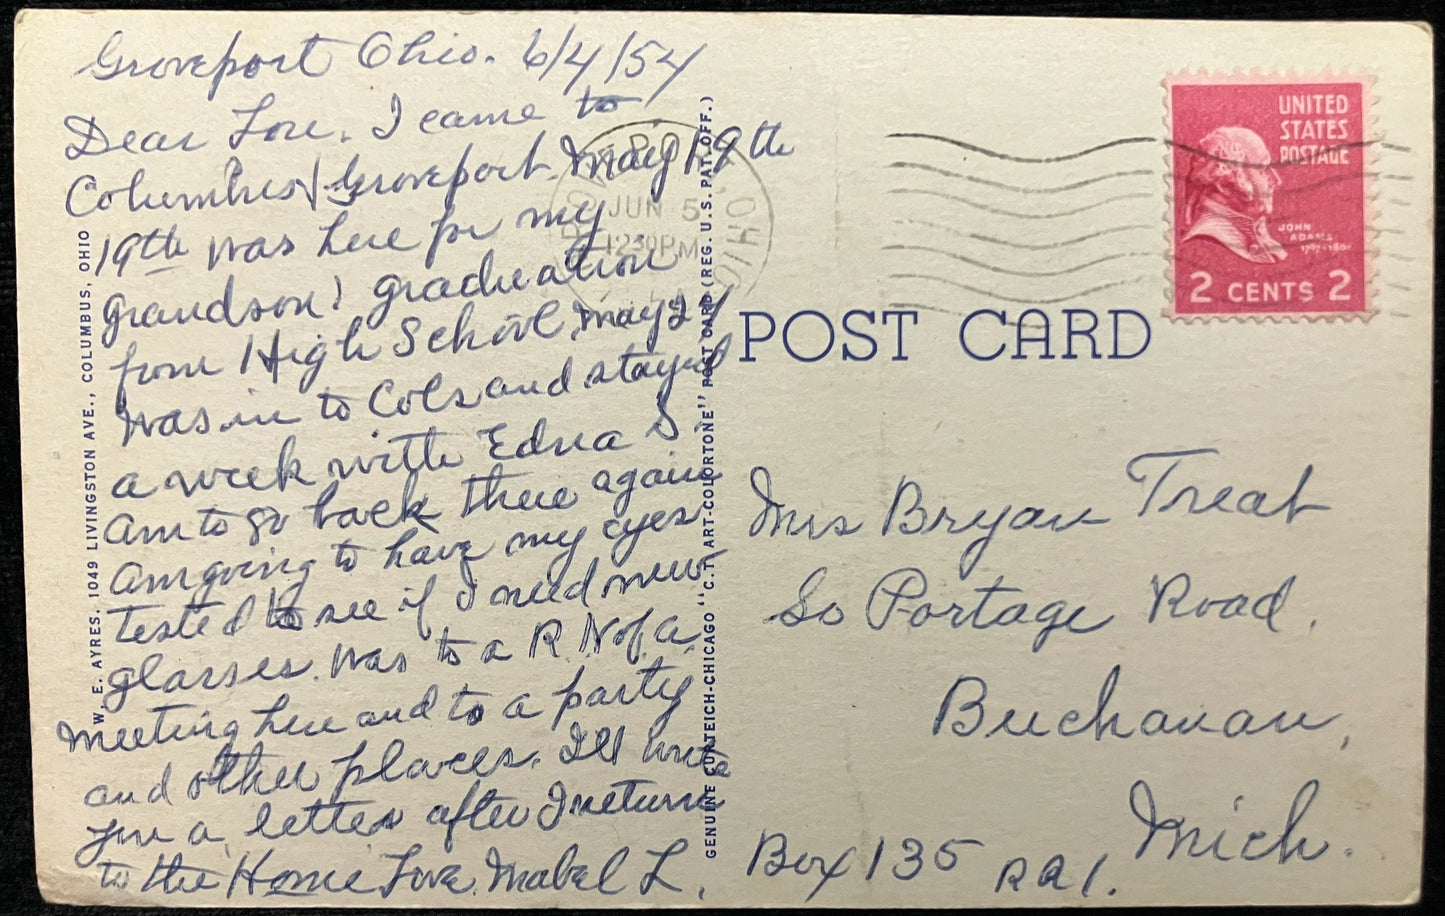 Groveport Ohio. 6/4/54
Dear Lou, I came to
Columbus & Groveport May 19th
19th was here for my
grandson! graduation
from High School, May 24
was in to Cols and stayed
a week with Edna S.
am to go back there again
am going to have my eyes
tested to see if I need new
glasses. Was to a R.N. of A.
meeting here and to a party
and other places. I'll write
you a letter after I return
to the Home Love, Mabel L.
W. E. AYRES. 1049 LIVINGSTON AVE., COLUMBUS, OHIO
GENUINE CURTEICH-CHICAGO "C.T. ART-COLORTONE" POST CARD (REG. U.S. PAT. OFF.)
JUN 5
12 30 PM
OHIO
UNITED
STATES
POSTAGE
JOHN
ADAMS
1797-1801
2 CENTS 2
POST CARD
Mrs Bryan Treat
So Portage Road,
Buchanan,
Mich.
Box 135 RR1.